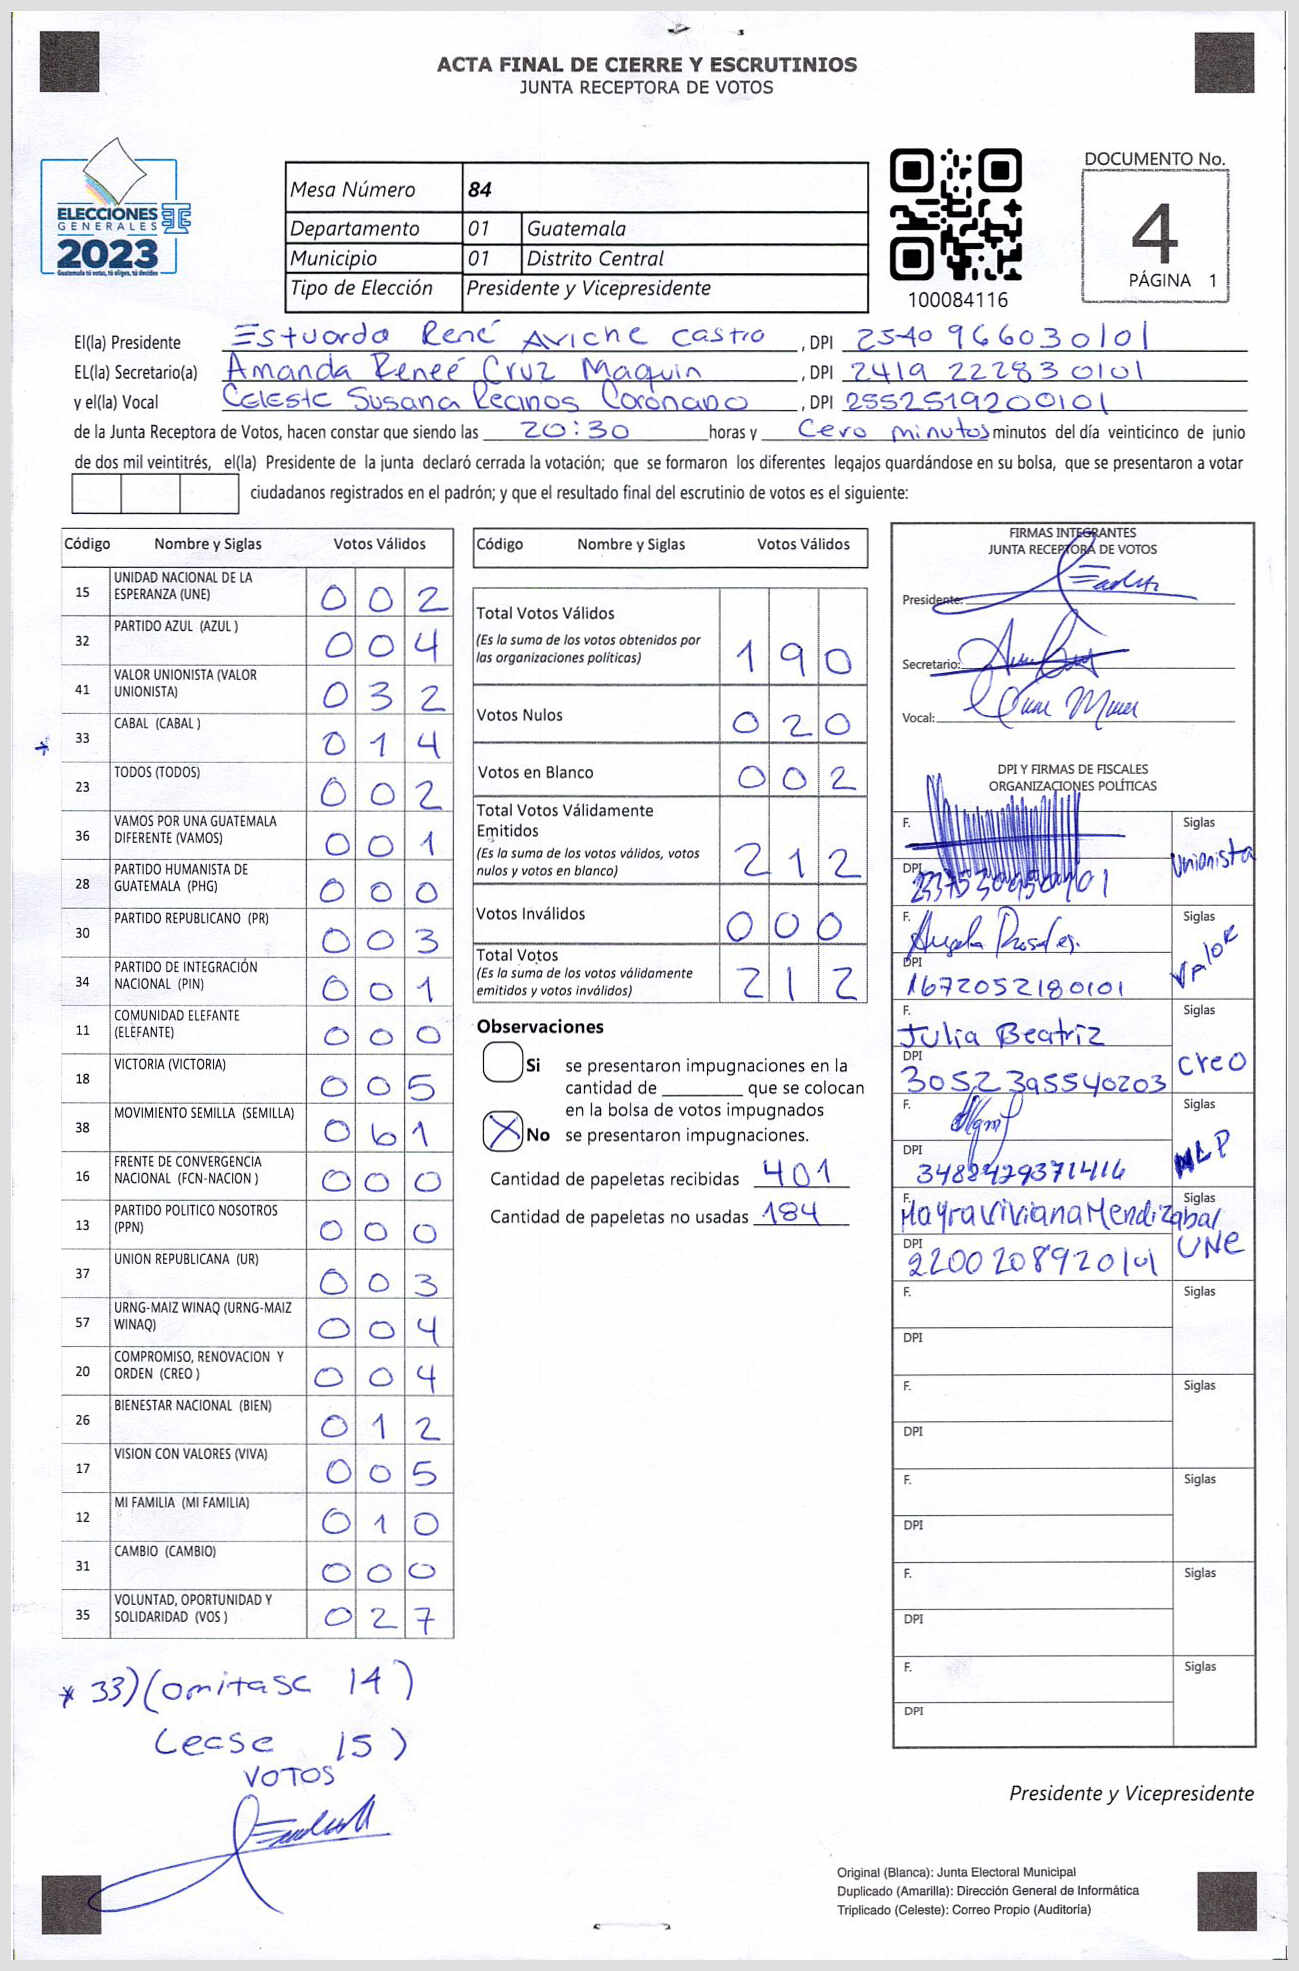 ACTA FINAL DE CIERRE Y ESCRUTINIOS
JUNTA RECEPTORA DE VOTOS
ELECCIONES
GENERALES
2023
Guatemala tú votas, tú eliges, tú decides
Mesa Número 84
Departamento 01 Guatemala
Municipio 01 Distrito Central
Tipo de Elección Presidente y Vicepresidente
100084116
DOCUMENTO No.
4
PÁGINA 1
El(la) Presidente Estuardo René Aviche Castro, DPI 2540 966030101
EL(la) Secretario(a) Amanda Reneé Cruz Maquin, DPI 2419 22283 0101
y el(la) Vocal Celeste Susana Recinos Coronado, DPI 2552519200101
de la Junta Receptora de Votos, hacen constar que siendo las 20:30 horas y Cero minutos minutos del día veinticinco de junio
de dos mil veintitrés, el(la) Presidente de la junta declaró cerrada la votación; que se formaron los diferentes legajos guardándose en su bolsa, que se presentaron a votar
ciudadanos registrados en el padrón; y que el resultado final del escrutinio de votos es el siguiente:
Código Nombre y Siglas Votos Válidos
15 UNIDAD NACIONAL DE LA
ESPERANZA (UNE) 0 0 2
32 PARTIDO AZUL (AZUL ) 0 0 4
41 VALOR UNIONISTA (VALOR
UNIONISTA) 0 3 2
* 33 CABAL (CABAL ) 0 1 4
23 TODOS (TODOS) 0 0 2
36 VAMOS POR UNA GUATEMALA
DIFERENTE (VAMOS) 0 0 1
28 PARTIDO HUMANISTA DE
GUATEMALA (PHG) 0 0 0
30 PARTIDO REPUBLICANO (PR) 0 0 3
34 PARTIDO DE INTEGRACIÓN
NACIONAL (PIN) 0 0 1
11 COMUNIDAD ELEFANTE
(ELEFANTE) 0 0 0
18 VICTORIA (VICTORIA) 0 0 5
38 MOVIMIENTO SEMILLA (SEMILLA) 0 6 1
16 FRENTE DE CONVERGENCIA
NACIONAL (FCN-NACION ) 0 0 0
13 PARTIDO POLITICO NOSOTROS
(PPN) 0 0 0
37 UNION REPUBLICANA (UR) 0 0 3
57 URNG-MAIZ WINAQ (URNG-MAIZ
WINAQ) 0 0 4
20 COMPROMISO, RENOVACION Y
ORDEN (CREO ) 0 0 4
26 BIENESTAR NACIONAL (BIEN) 0 1 2
17 VISION CON VALORES (VIVA) 0 0 5
12 MI FAMILIA (MI FAMILIA) 0 1 0
31 CAMBIO (CAMBIO) 0 0 0
35 VOLUNTAD, OPORTUNIDAD Y
SOLIDARIDAD (VOS ) 0 2 7
* 33) (omitase 14)
(Lease 15)
VOTOS
Código Nombre y Siglas Votos Válidos
Total Votos Válidos
(Es la suma de los votos obtenidos por
las organizaciones políticas) 1 9 0
Votos Nulos 0 2 0
Votos en Blanco 0 0 2
Total Votos Válidamente
Emitidos
(Es la suma de los votos válidos, votos
nulos y votos en blanco) 2 1 2
Votos Inválidos 0 0 0
Total Votos
(Es la suma de los votos válidamente
emitidos y votos inválidos) 2 1 2
Observaciones
Si se presentaron impugnaciones en la
cantidad de ________ que se colocan
en la bolsa de votos impugnados
X No se presentaron impugnaciones.
Cantidad de papeletas recibidas 401
Cantidad de papeletas no usadas 184
FIRMAS INTEGRANTES
JUNTA RECEPTORA DE VOTOS
Presidente:
Secretario:
Vocal:
DPI Y FIRMAS DE FISCALES
ORGANIZACIONES POLÍTICAS
F. Siglas
DPI Unionista
F. Angela Rosales. Siglas
DPI Valor
1672052180101
F. Siglas
Julia Beatriz
DPI Creo
3052395540203
F. Siglas
DPI MLP
3482429371416
F. Siglas
Mayra Viviana Mendizabal
DPI UNE
2200208920101
F. Siglas
DPI
F. Siglas
DPI
F. Siglas
DPI
F. Siglas
DPI
F. Siglas
DPI
Presidente y Vicepresidente
Original (Blanca): Junta Electoral Municipal
Duplicado (Amarilla): Dirección General de Informática
Triplicado (Celeste): Correo Propio (Auditoría)